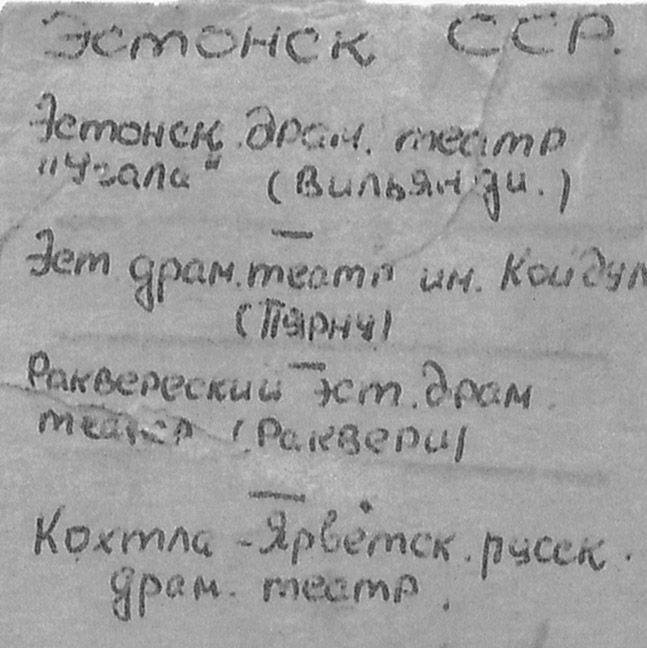 Эстонск ССР.
Эстонск. драм. театр
"Угала" (Вильянди.)
—
Эст драм. театр им. Койдул
(Пярну)
—
Раквереский эст. драм.
театр (Раквери)
—
Кохтла-Ярветск. русск.
драм. театр.